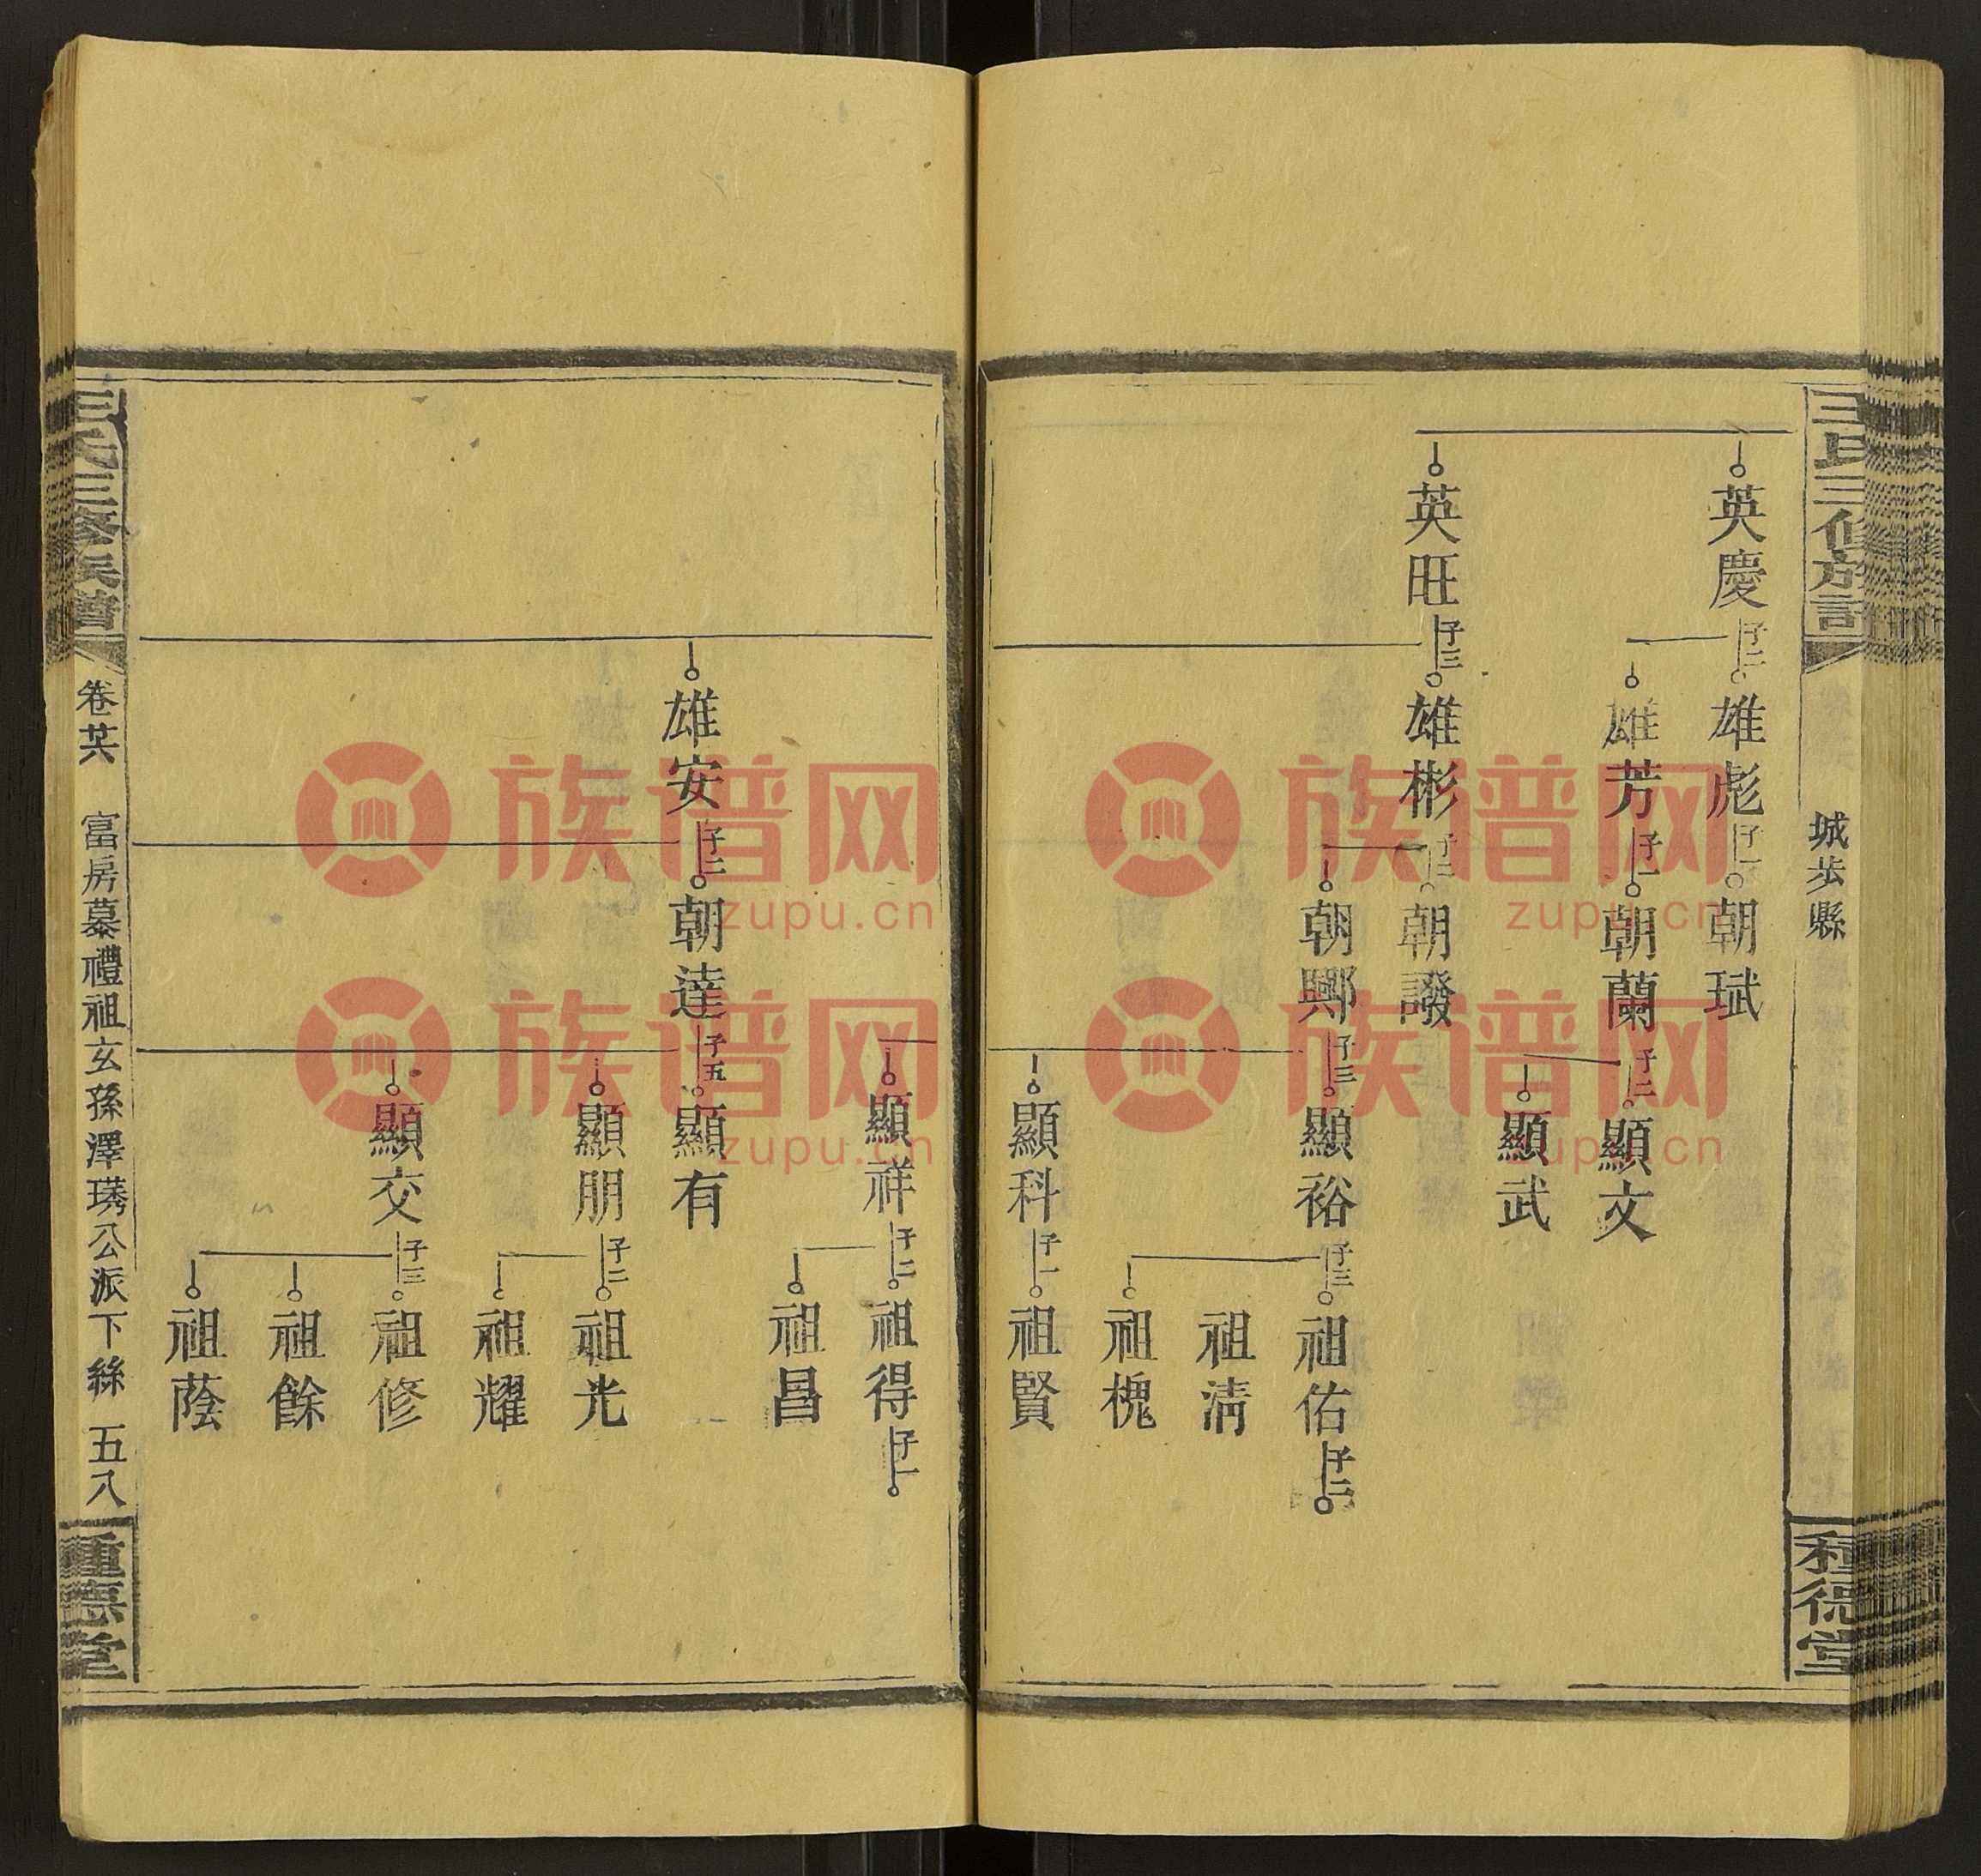 城步縣
英慶
子二
雄彪
子一
朝珷
雄芳
子一
朝蘭
子二
顯文
顯武
英旺
子三
雄彬
子二
朝譭
朝興
子三
顯裕
子三
祖佑
子二
祖清
祖槐
顯科
子一
祖賢
顯祥
子二
祖得
子一
祖昌
雄安
子二
朝達
子五
顯有
顯朋
子二
祖光
祖耀
顯交
子三
祖修
祖餘
祖蔭
三修族譜
卷廿六
富房慕禮祖玄孫澤琇公派下絲
五八
種德堂
族谱网
zupu.cn
族谱网
zupu.cn
族谱网
zupu.cn
族谱网
zupu.cn